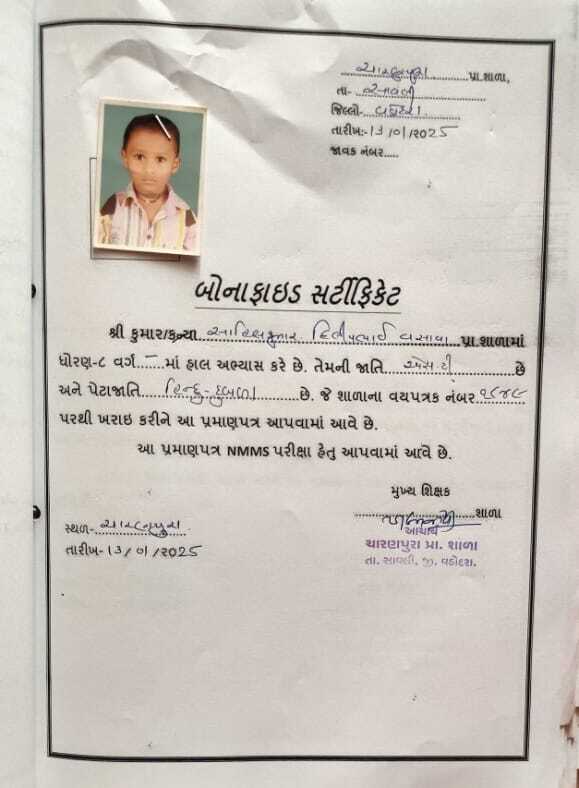 ચારણપુરા પ્રા.શાળા,
તા- સાવલી
જિલ્લો- વડોદરા.
તારીખ:-13/01/2025
જાવક નંબર.....
બોનાફાઇડ સર્ટીફિકેટ
શ્રી કુમાર/કન્યા દિલીપભાઈ વસાવા પ્રા.શાળામાં
ધોરણ-૮ વર્ગ.......માં હાલ અભ્યાસ કરે છે. તેમની જાતિ એસ.ટી છે
અને પેટાજાતિ હિન્દુ-દુબળા છે. જે શાળાના વયપત્રક નંબર ૧૮૪૯
પરથી ખરાઇ કરીને આ પ્રમાણપત્ર આપવામાં આવે છે.
આ પ્રમાણપત્ર NMMS પરીક્ષા હેતુ આપવામાં આવે છે.
મુખ્ય શિક્ષક
શાળા
આચાર્ય
સ્થળ- ચારણપુરા
ચારણપુરા પ્રા. શાળા
તારીખ-13/01/2025
તા. સાવલી, જી. વડોદરા.